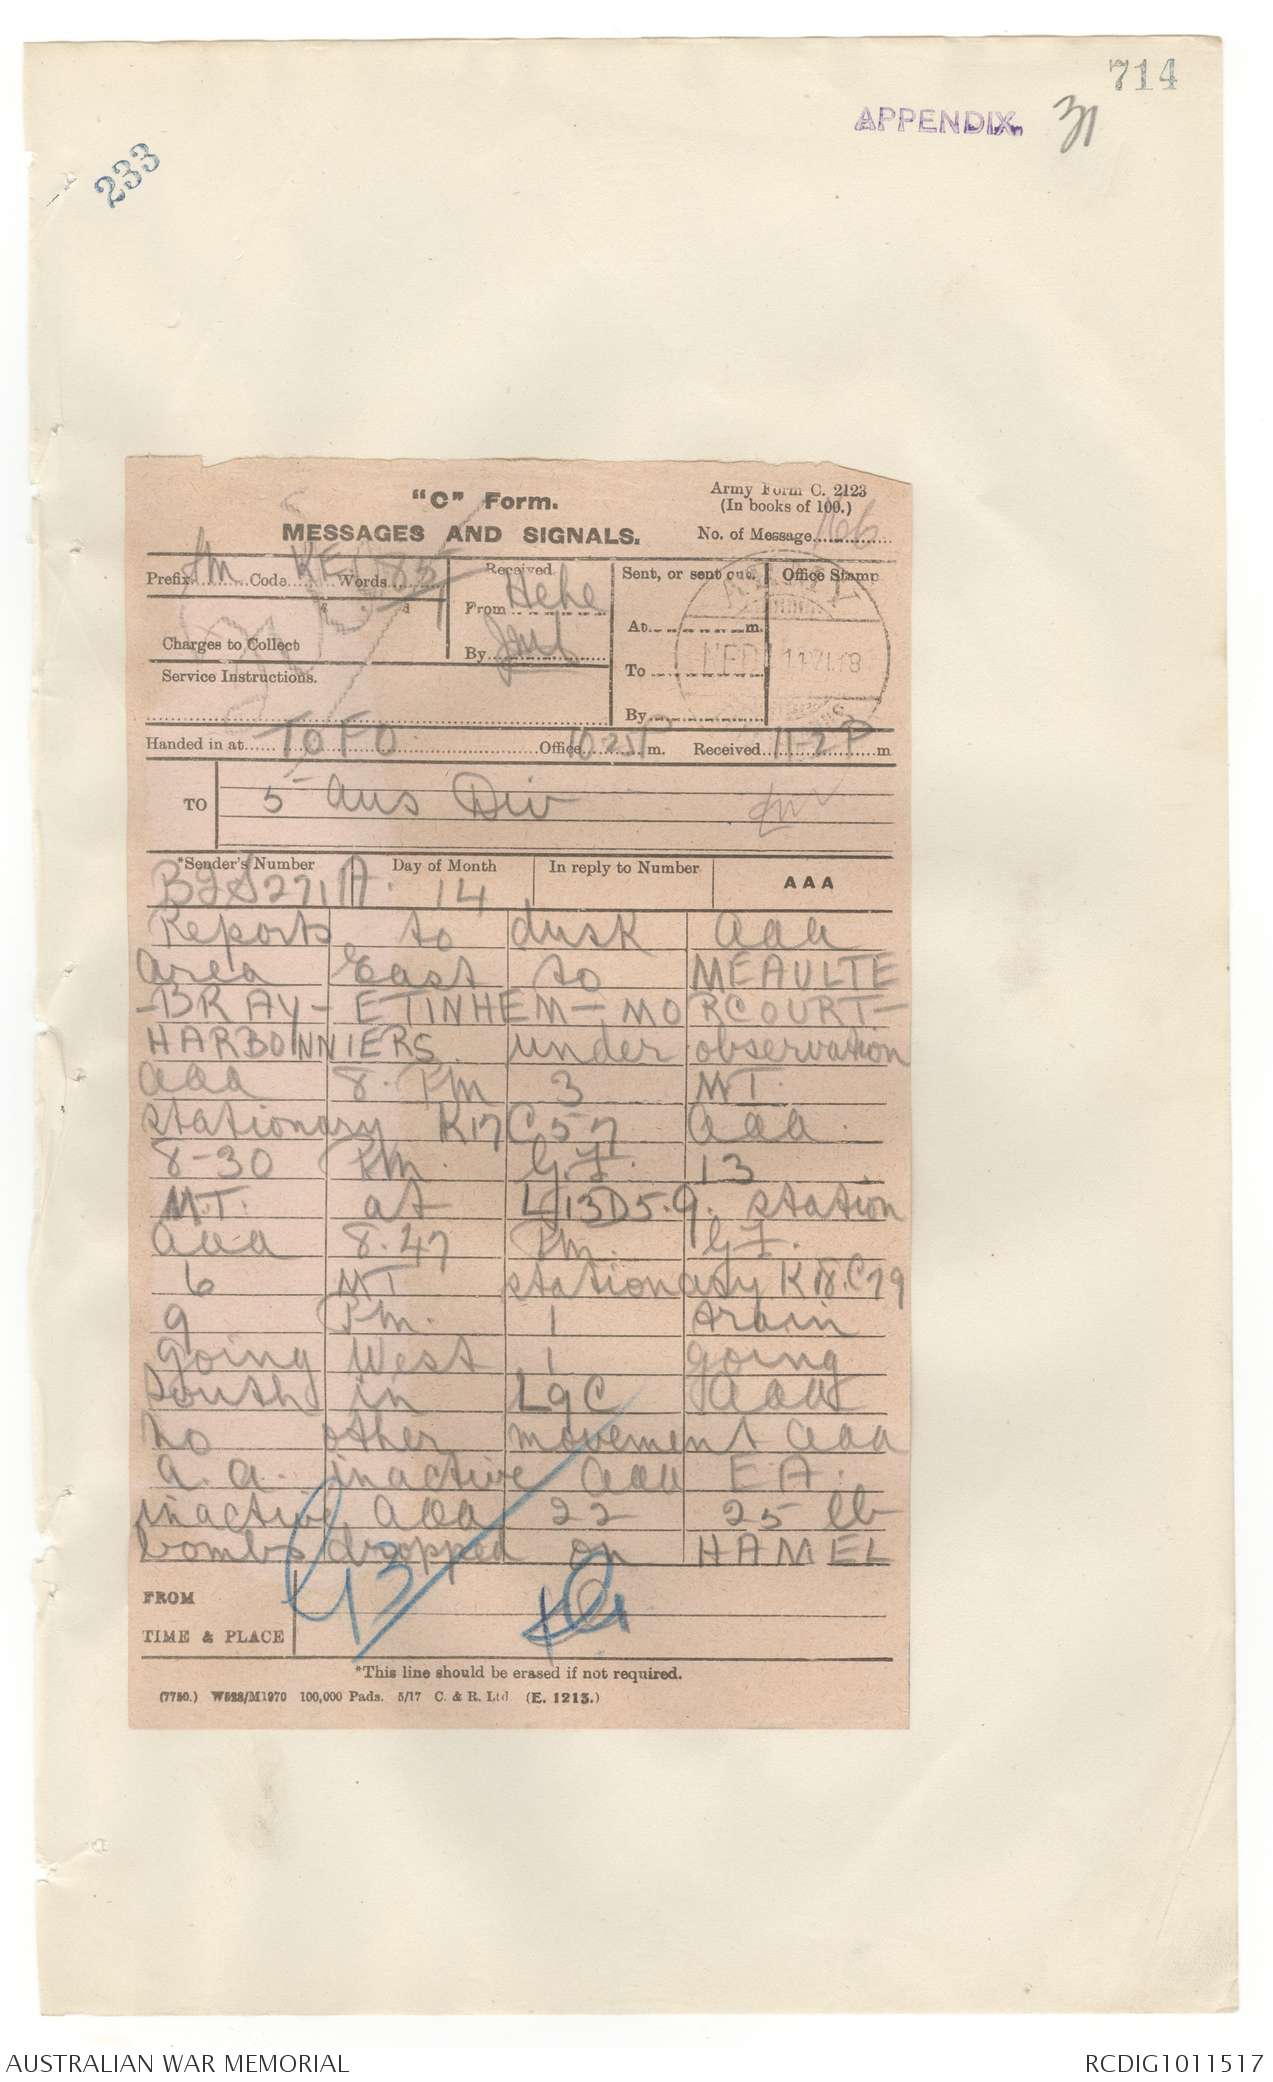 714
APPENDIX. 31
233
"C" Form.
MESSAGES AND SIGNALS.
Army Form C. 2123
(In books of 100.)
No. of Message
Prefix Sm Code KE Words 85
Received
From Hehe
By
Sent, or sent out.
At m.
To
By
Office Stamp
Charges to Collect
Service Instructions.
Handed in at TOFO Office 10-25P m. Received 11-2P m
TO 5 Aus Div
*Sender's Number Day of Month In reply to Number AAA
14
Reports to dusk aaa
area East to MEAULTE
-BRAY- ETINHEM-MORCOURT-
HARBONNIERS under observation
aaa 8. Pm 3 MT.
stationary K17C57 aaa.
8-30 Pm. G.F. 13
M.T. at L13D5.9. station
aaa 8.47 Pm. G.F.
6 MT stationary K18.C79
9 Pm. 1 train
going West 1 going
south in L9C aaa
no other movement aaa
a.a. inactive aaa E.A.
inactive aaa 22 25 lb
bombs dropped on HAMEL
G3
FROM
TIME & PLACE
*This line should be erased if not required.
(7750.) W528/M1970 100,000 Pads. 5/17 C. & R. Ltd (E. 1213.)
AUSTRALIAN WAR MEMORIAL
RCDIG1011517